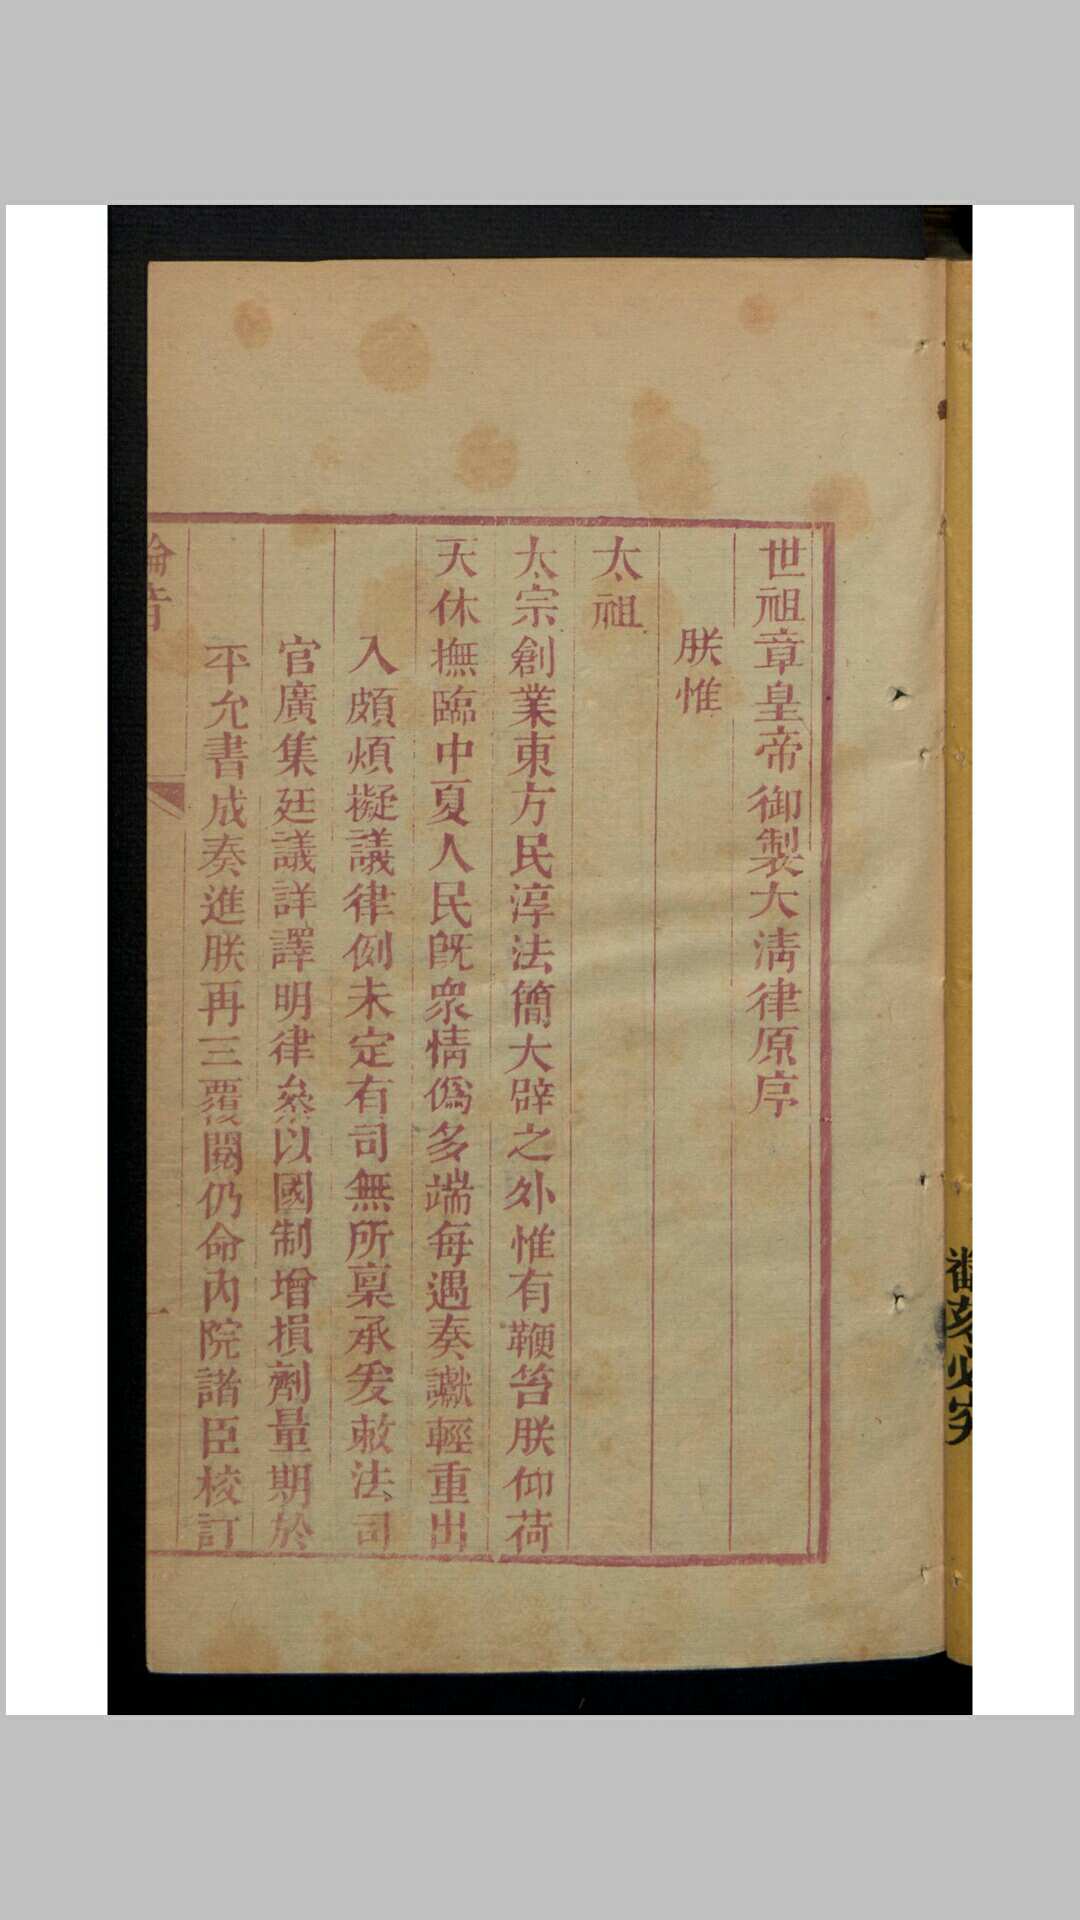 世祖章皇帝御製大淸律原序
朕惟
太祖
太宗創業東方民淳法簡大辟之外惟有鞭笞朕仰荷
天休撫臨中夏人民旣衆情僞多端每遇奏讞輕重出
入頗煩擬議律例未定有司無所稟承爰敕法司
官廣集廷議詳譯明律叅以國制增損劑量期於
平允書成奏進朕再三覆閱仍命內院諸臣校訂
必究